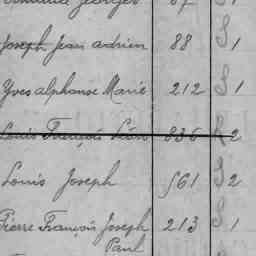 Georges 67 S 1
Joseph Jean adrien 88 S 1
Yves alphonse Marie 212 S 1
Louis François Léon 836 R 2
Louis Joseph 561 S 2
Pierre François Joseph 213 S 1
Paul